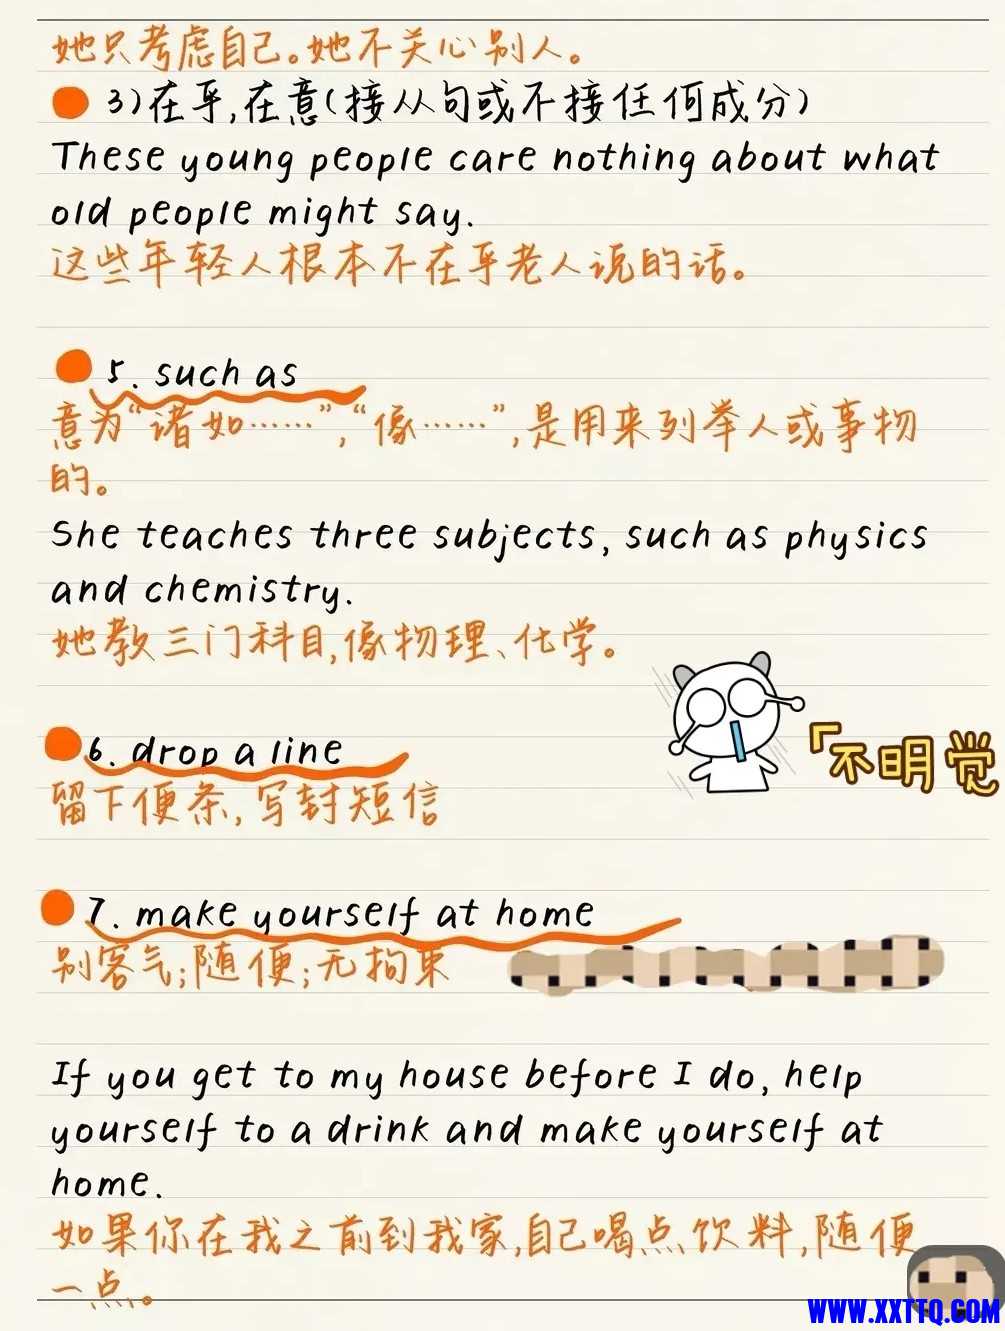 她只考虑自己。她不关心别人。
3)在乎,在意(接从句或不接任何成分)
These young people care nothing about what
old people might say.
这些年轻人根本不在乎老人说的话。
5. such as
意为“诸如……”,“像……”,是用来列举人或事物
的。
She teaches three subjects, such as physics
and chemistry.
她教三门科目,像物理、化学。
6. drop a line
「不明觉
留下便条,写封短信
7. make yourself at home
别客气;随便;无拘束
If you get to my house before I do, help
yourself to a drink and make yourself at
home.
如果你在我之前到我家,自己喝点饮料,随便
一点。
WWW.XXTTQ.COM